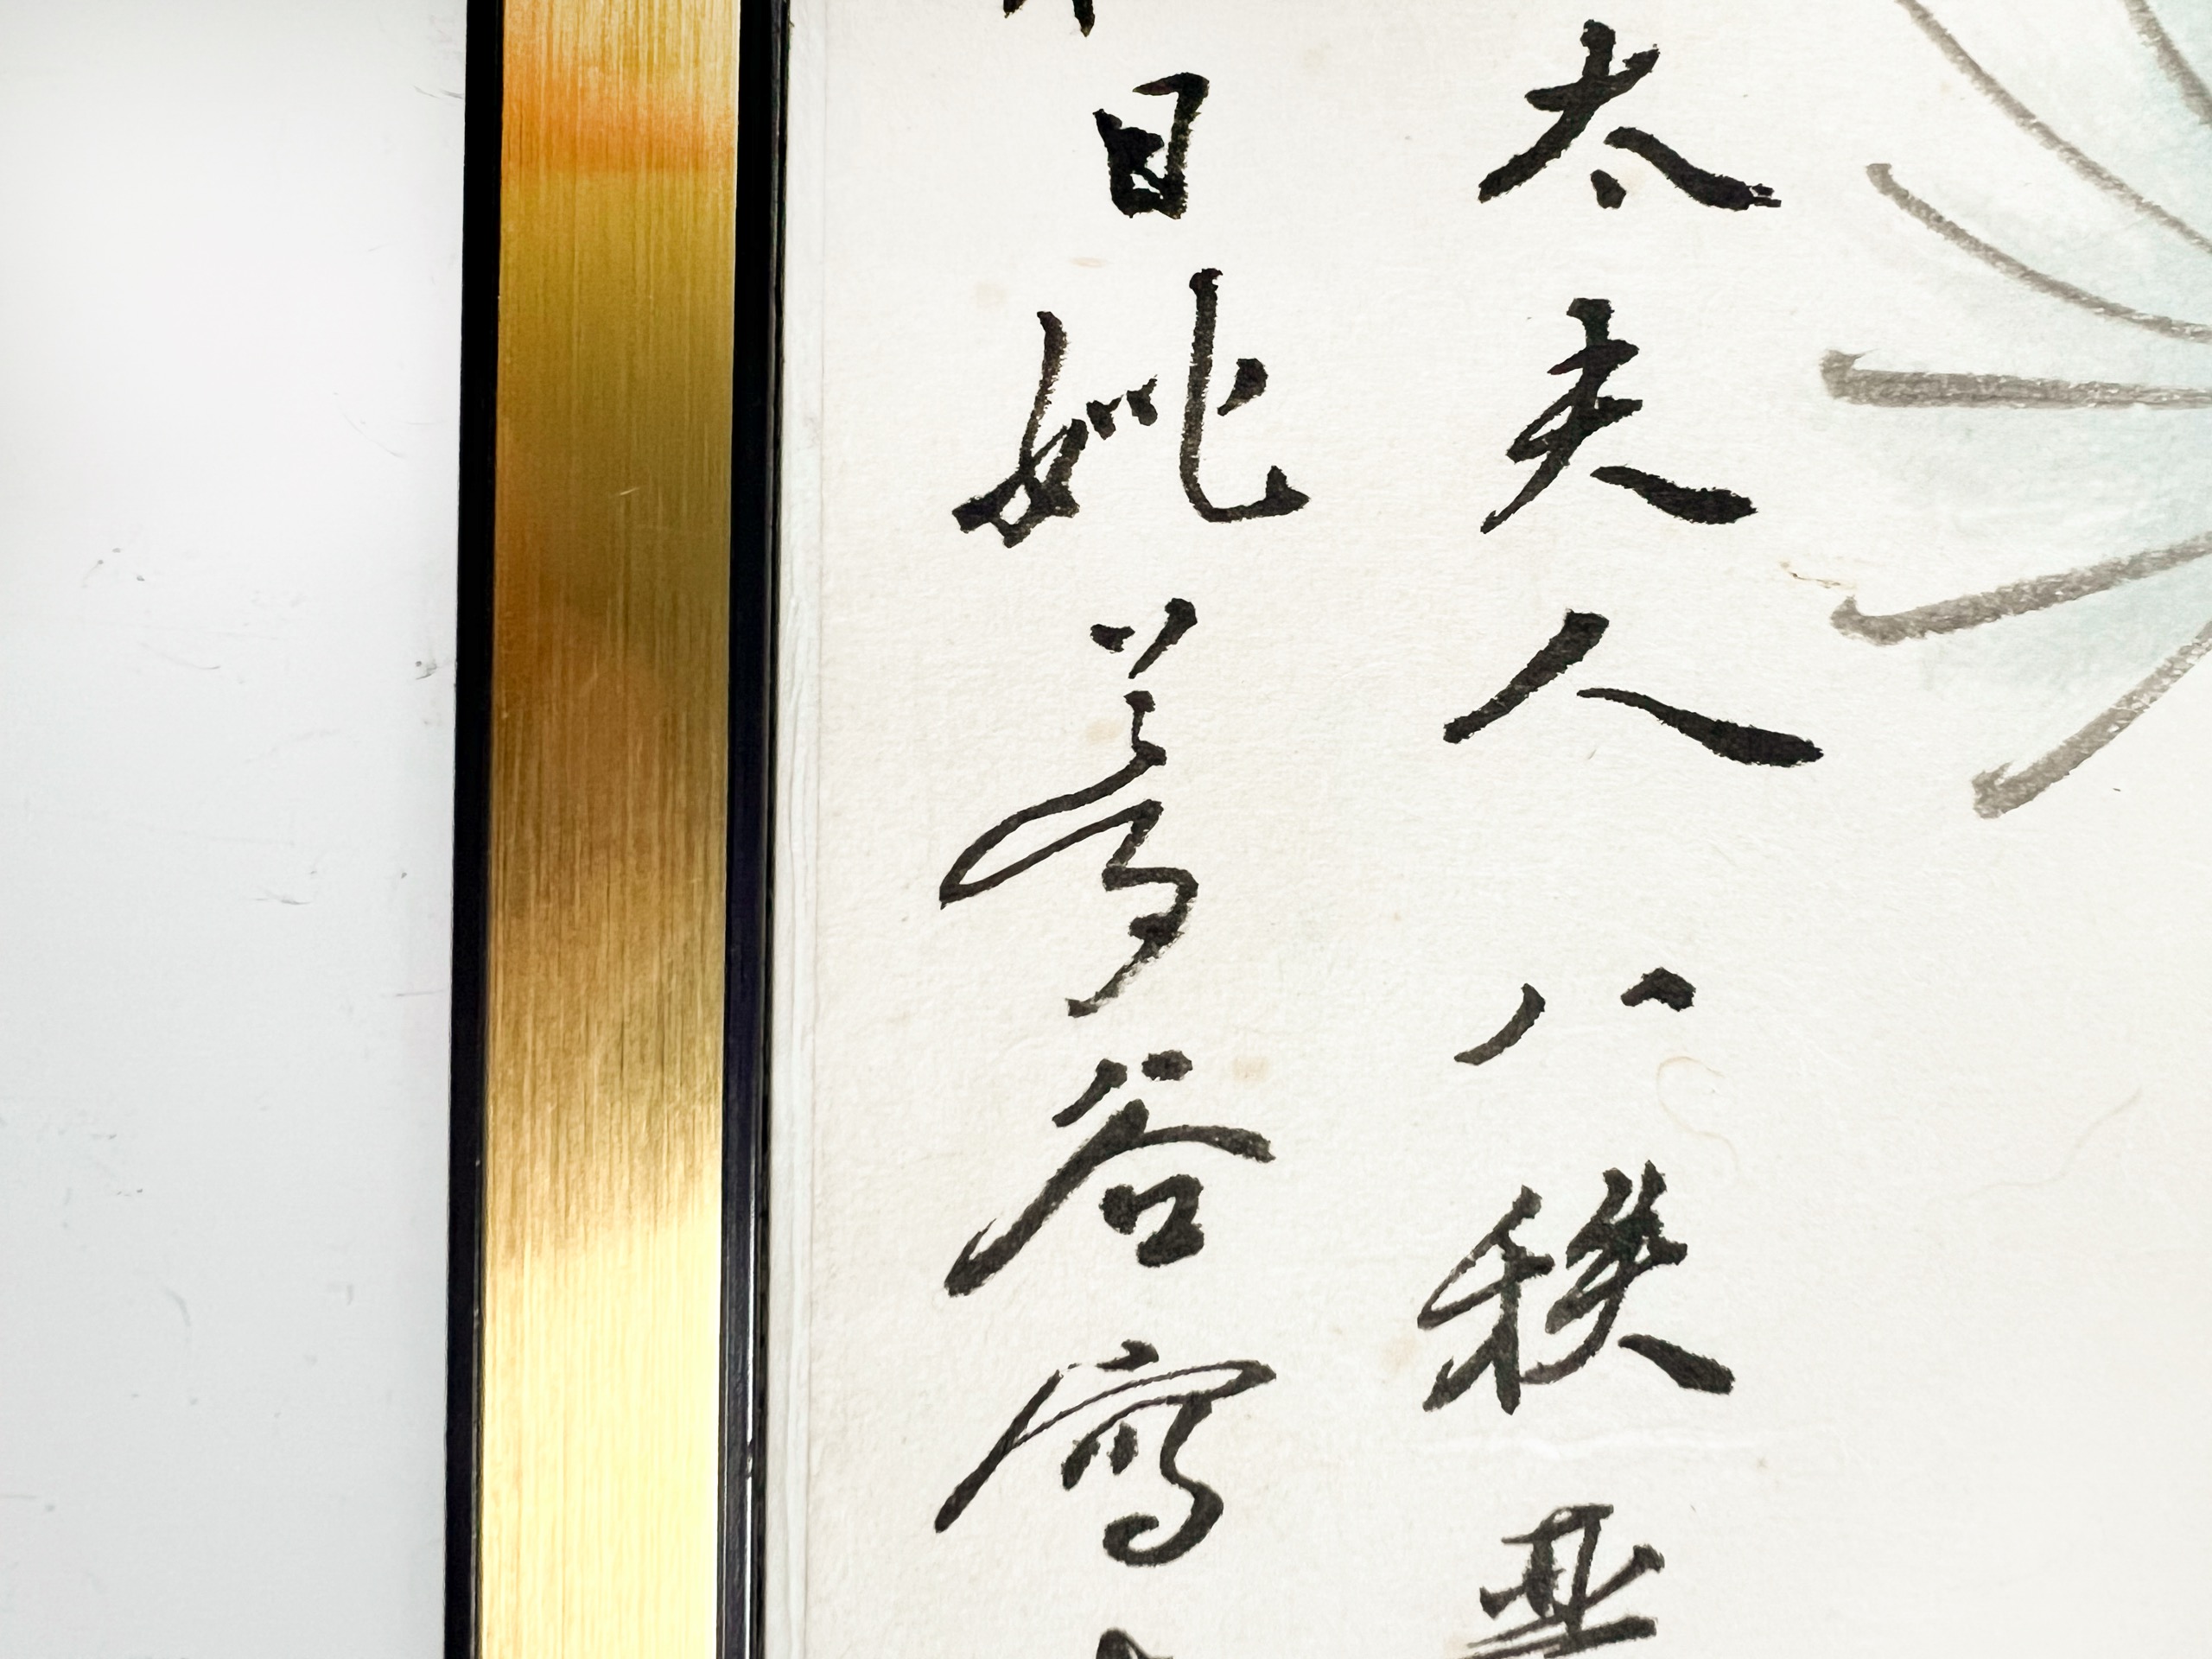 太夫人八秩
日姚夢谷寫